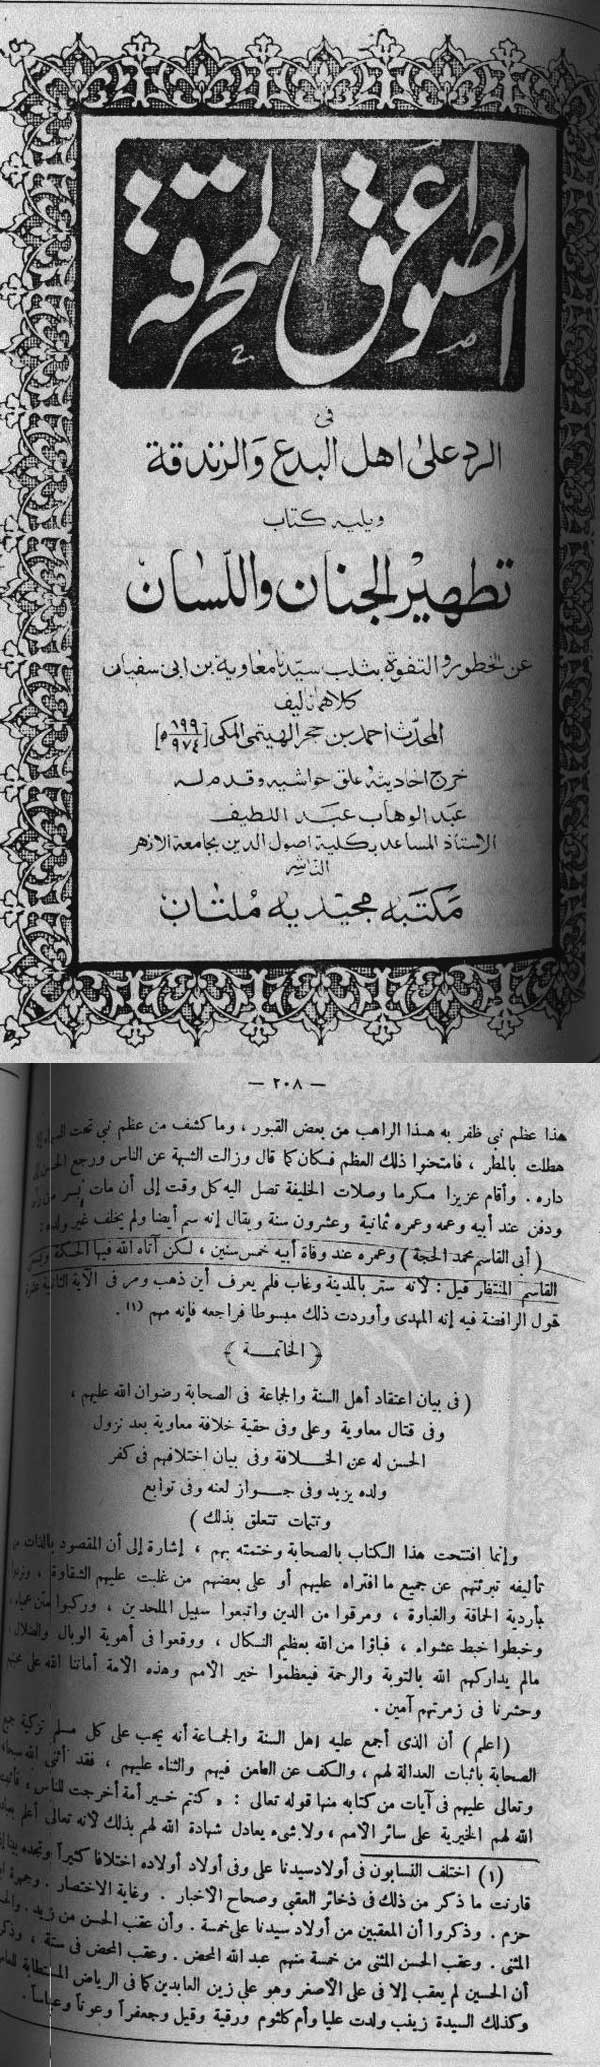 الصواعق المحرقة
فى
الرد على اهل البدع والزندقة
ويليه كتاب
تطهير الجنان واللسان
عن الخطور والتفوة بثلب سيدنا معاوية بن ابى سفيان
كلاهما تاليف
المحدث احمد بن حجر الهيتمى المكى [٨٩٩ ٩٧٤ ه]
خرج احاديثه علق حواشيه وقدم له
عبد الوهاب عبد اللطيف
الاستاذ المساعد بكلية اصول الدين بجامعة الازهر
الناشر
مكتبه مجيديه ملتان
— ٢٠٨ —
هذا عظم نبي ظفر به هذا الراهب من بعض القبور ، وما كشف من عظم نبي تحت السماء إلا
هطلت بالمطر ، فامتحنوا ذلك العظم فكان كما قال وزالت الشبهة عن الناس ورجع الحسن إلى
داره . وأقام عزيزا مكرما وصلات الخليفة تصل اليه كل وقت إلى أن مات بسر من رأى
ودفن عند أبيه وعمه وعمره ثمانية وعشرون سنة ويقال إنه سم أيضا ولم يخلف غير ولده :
( أبي القاسم محمد الحجة ) وعمره عند وفاة أبيه خمس سنين ، لكن آتاه الله فيها الحكمة ويسمى
القاسم المنتظر قيل : لأنه ستر بالمدينة وغاب فلم يعرف أين ذهب ومر فى الآية الثانية عشرة
قول الرافضة فيه إنه المهدى وأوردت ذلك مبسوطا فراجعه فإنه مهم (١) .
﴿ الخاتمـــة ﴾
( فى بيان اعتقاد أهل السنة والجماعة فى الصحابة رضوان الله عليهم ،
وفى قتال معاوية وعلى وفى حقية خلافة معاوية بعد نزول
الحسن له عن الخـلافة وفى بيان اختلافهم فى كفر
ولده يزيد وفى جـواز لعنه وفى توابع
وتتمات تتعلق بذلك )
وإنما افتتحت هذا الكتاب بالصحابة وختمته بهم ، إشارة إلى أن المقصود بالذات من
تأليفه تبرئتهم عن جميع ما افتراه عليهم أو على بعضهم من غلبت عليهم الشقاوة ، وتردوا
بأردية الحماقة والغباوة ، ومرقوا من الدين واتبعوا سبيل الملحدين ، وركبوا متن عمياء ،
وخبطوا خبط عشواء ، فباؤا من الله بعظيم النكال ، ووقعوا فى أهوية الوبال والضلال ،
مالم يداركهم الله بالتوبة والرحمة فيعظموا خير الأمم وهذه الأمة أماتنا الله على محبتهم
وحشرنا فى زمرتهم آمين .
( اعلم ) أن الذى أجمع عليه اهل السنة والجماعة أنه يجب على كل مسلم تزكية جميع
الصحابة باثبات العدالة لهم ، والكف عن الطعن فيهم والثناء عليهم ، فقد أثنى الله سبحانه
وتعالى عليهم فى آيات من كتابه منها قوله تعالى : « كنتم خير أمة أخرجت للناس ، فأثبت
الله لهم الخيرية على سائر الأمم ، ولا شىء يعادل شهادة الله لهم بذلك لأنه تعالى أعلم بعباده
(١) اختلف النسابون فى أولاد سيدنا على وفى أولاد أولاده اختلافا كثيراً وتجده بينا إذا
قارنت ما ذكر من ذلك فى ذخائر العقبي وصحاح الأخبار . وغاية الاختصار . وجمهرة ابن
حزم . وذكروا أن المعقبين من أولاد سيدنا على خمسة . وأن عقب الحسن من زيد . والحسن
المثنى . وعقب الحسن المثنى من خمسة منهم عبد الله المحض . وعقب المحض فى ستة ، وذكروا
أن الحسين لم يعقب إلا فى على الأصغر وهو على زين العابدين كما فى الرياض المستطابة للعامرى
وكذلك السيدة زينب ولدت عليا وأم كلثوم ورقية وقيل وجعفراً وعوناً وعباساً .